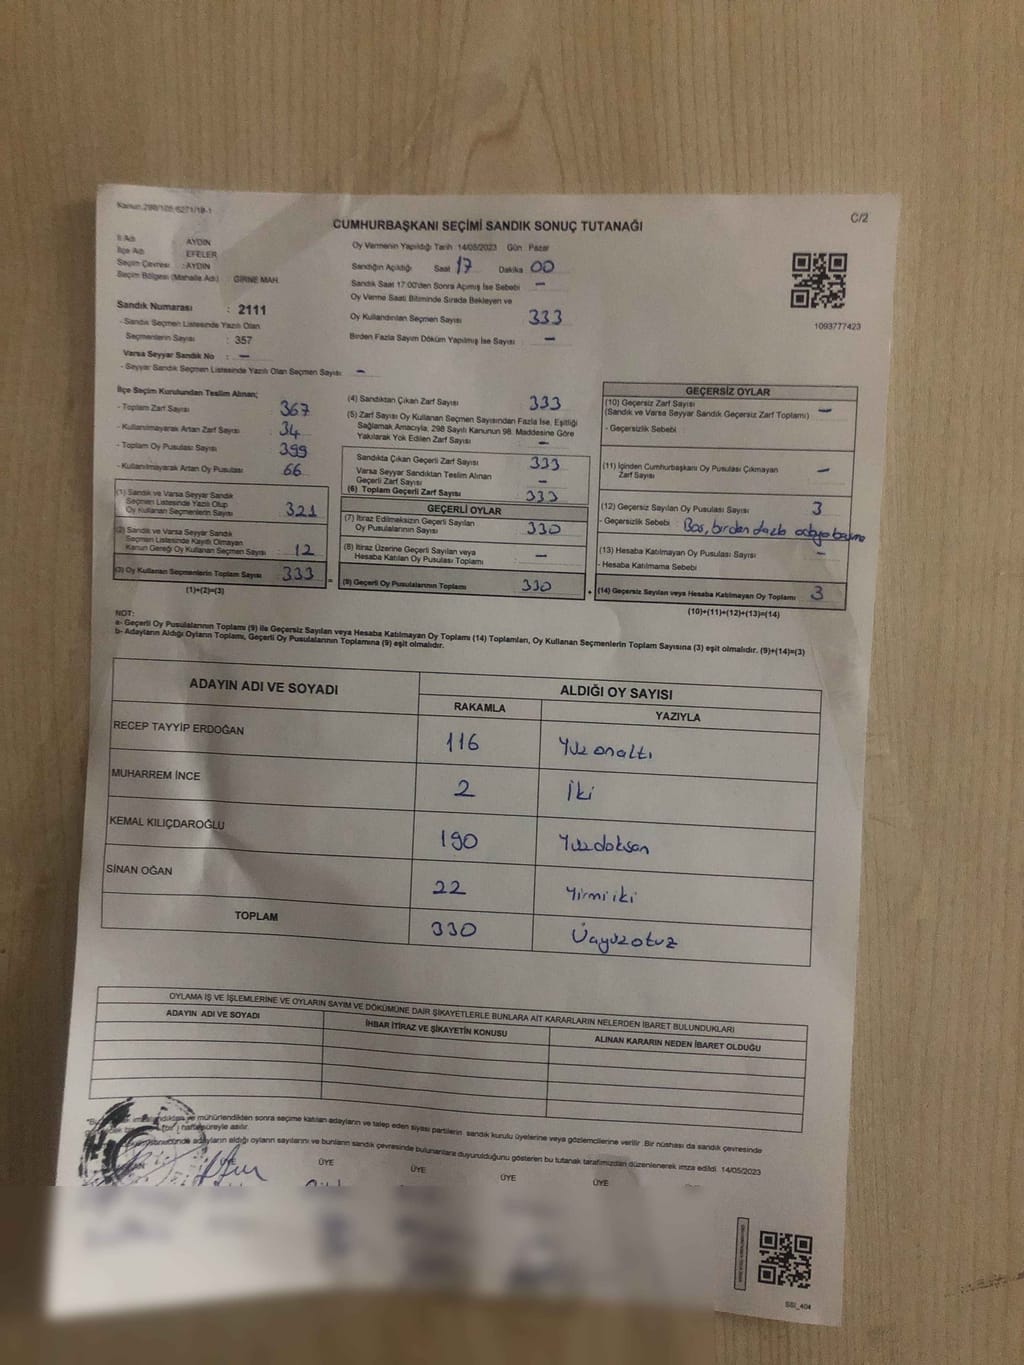 Kanun:298/105-6271/19-1
C/2
CUMHURBAŞKANI SEÇİMİ SANDIK SONUÇ TUTANAĞI
İl Adı AYDIN
İlçe Adı EFELER
Seçim Çevresi : AYDIN
Seçim Bölgesi (Mahalle Adı) : GİRNE MAH.
Sandık Numarası : 2111
- Sandık Seçmen Listesinde Yazılı Olan
Seçmenlerin Sayısı : 357
Varsa Seyyar Sandık No : –
- Seyyar Sandık Seçmen Listesinde Yazılı Olan Seçmen Sayısı : –
Oy Vermenin Yapıldığı Tarih 14/05/2023 Gün Pazar
Sandığın Açıldığı Saat 17 Dakika 00
Sandık Saat 17:00'den Sonra Açımış İse Sebebi –
Oy Verme Saati Bitiminde Sırada Bekleyen ve
Oy Kullandırılan Seçmen Sayısı 333
Birden Fazla Sayım Döküm Yapılmış İse Sayısı –
1093777423
İlçe Seçim Kurulundan Teslim Alınan;
- Toplam Zarf Sayısı 367
- Kullanılmayarak Artan Zarf Sayısı 34
- Toplam Oy Pusulası Sayısı 399
- Kullanılmayarak Artan Oy Pusulası 66
(1) Sandık ve Varsa Seyyar Sandık
Seçmen Listesinde Yazılı Olup
Oy Kullanan Seçmenlerin Sayısı 321
(2) Sandık ve Varsa Seyyar Sandık
Seçmen Listesinde Kayıtlı Olmayan
Kanun Gereği Oy Kullanan Seçmen Sayısı 12
(3) Oy Kullanan Seçmenlerin Toplam Sayısı 333
(1)+(2)=(3)
(4) Sandıktan Çıkan Zarf Sayısı 333
(5) Zarf Sayısı Oy Kullanan Seçmen Sayısından Fazla İse, Eşitliği
Sağlamak Amacıyla, 298 Sayılı Kanunun 98. Maddesine Göre
Yakılarak Yok Edilen Zarf Sayısı –
Sandıkta Çıkan Geçerli Zarf Sayısı 333
Varsa Seyyar Sandıktan Teslim Alınan
Geçerli Zarf Sayısı –
(6) Toplam Geçerli Zarf Sayısı 333
GEÇERLİ OYLAR
(7) İtiraz Edilmeksizin Geçerli Sayılan
Oy Pusulalarının Sayısı 330
(8) İtiraz Üzerine Geçerli Sayılan veya
Hesaba Katılan Oy Pusulası Toplamı –
(9) Geçerli Oy Pusulalarının Toplamı 330
GEÇERSİZ OYLAR
(10) Geçersiz Zarf Sayısı
(Sandık ve Varsa Seyyar Sandık Geçersiz Zarf Toplamı) –
- Geçersizlik Sebebi :
(11) İçinden Cumhurbaşkanı Oy Pusulası Çıkmayan
Zarf Sayısı –
(12) Geçersiz Sayılan Oy Pusulası Sayısı 3
- Geçersizlik Sebebi : Boş, birden fazla adaya basma
(13) Hesaba Katılmayan Oy Pusulası Sayısı –
- Hesaba Katılmama Sebebi
(14) Geçersiz Sayılan veya Hesaba Katılmayan Oy Toplamı 3
(10)+(11)+(12)+(13)=(14)
NOT:
a- Geçerli Oy Pusulalarının Toplamı (9) ile Geçersiz Sayılan veya Hesaba Katılmayan Oy Toplamı (14) Toplamları, Oy Kullanan Seçmenlerin Toplam Sayısına (3) eşit olmalıdır. (9)+(14)=(3)
b- Adayların Aldığı Oyların Toplamı, Geçerli Oy Pusulalarının Toplamına (9) eşit olmalıdır.
ADAYIN ADI VE SOYADI ALDIĞI OY SAYISI
RAKAMLA YAZIYLA
RECEP TAYYİP ERDOĞAN 116 Yüzonaltı
MUHARREM İNCE 2 İki
KEMAL KILIÇDAROĞLU 190 Yüzdoksan
SİNAN OĞAN 22 Yirmiiki
TOPLAM 330 Üçyüzotuz
OYLAMA İŞ VE İŞLEMLERİNE VE OYLARIN SAYIM VE DÖKÜMÜNE DAİR ŞİKAYETLERLE BUNLARA AİT KARARLARIN NELERDEN İBARET BULUNDUKLARI
ADAYIN ADI VE SOYADI İHBAR İTİRAZ VE ŞİKAYETİN KONUSU ALINAN KARARIN NEDEN İBARET OLDUĞU
mühürlendikten sonra seçime katılan adayların ve talep eden siyasi partilerin sandık kurulu üyelerine veya gözlemcilerine verilir. Bir nüshası da sandık çevresinde
hafta süreyle asılır.
adayların aldığı oyların sayılarını ve bunların sandık çevresinde bulunanlara duyurulduğunu gösteren bu tutanak tarafımızdan düzenlenerek imza edildi. 14/05/2023
ÜYE ÜYE ÜYE ÜYE
SSI_404